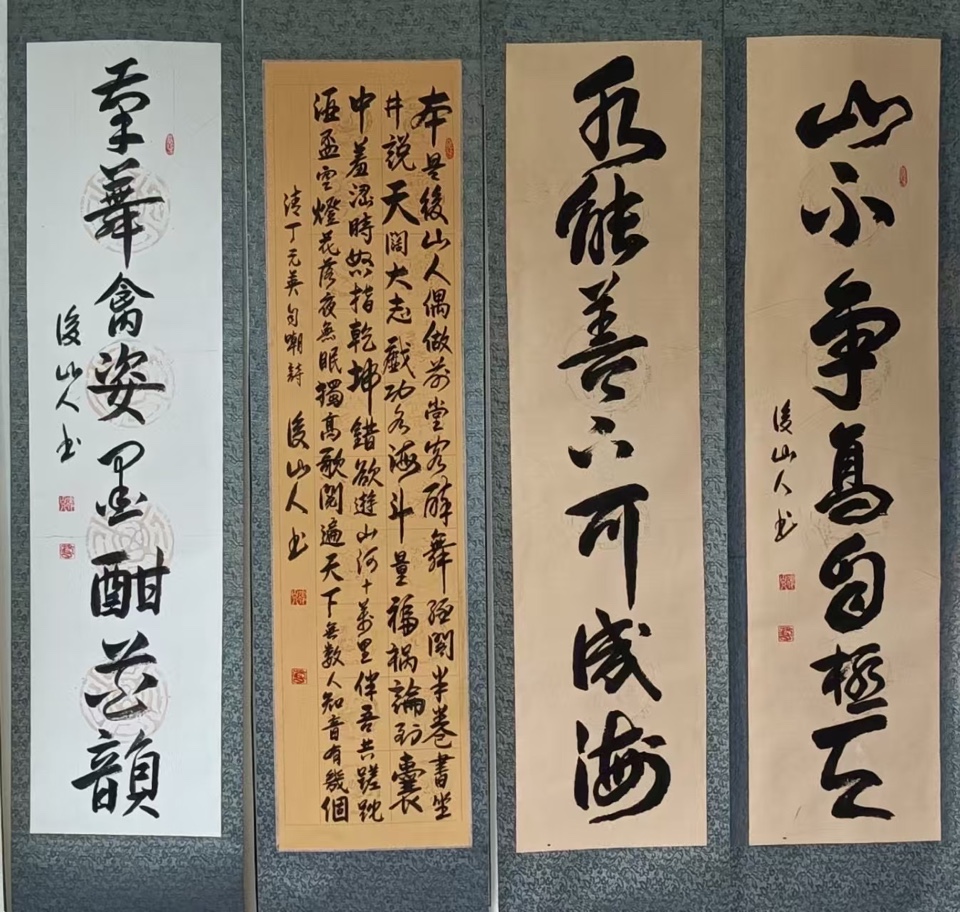 山不爭高自極天
後山人书
水能善下可成海
本是後山人偶做前堂客醉舞經閣半卷書坐
井説天闊大志戲功名海斗量福禍論到囊
中羞澀時怒指乾坤錯欲遊山河十萬里伴吾共蹉跎
酒盃空燈花落夜無眠獨高歌閱遍天下無數人知音有幾個
清丁元英自嘲詩
後山人书
禽姿墨酣韻
後山人书